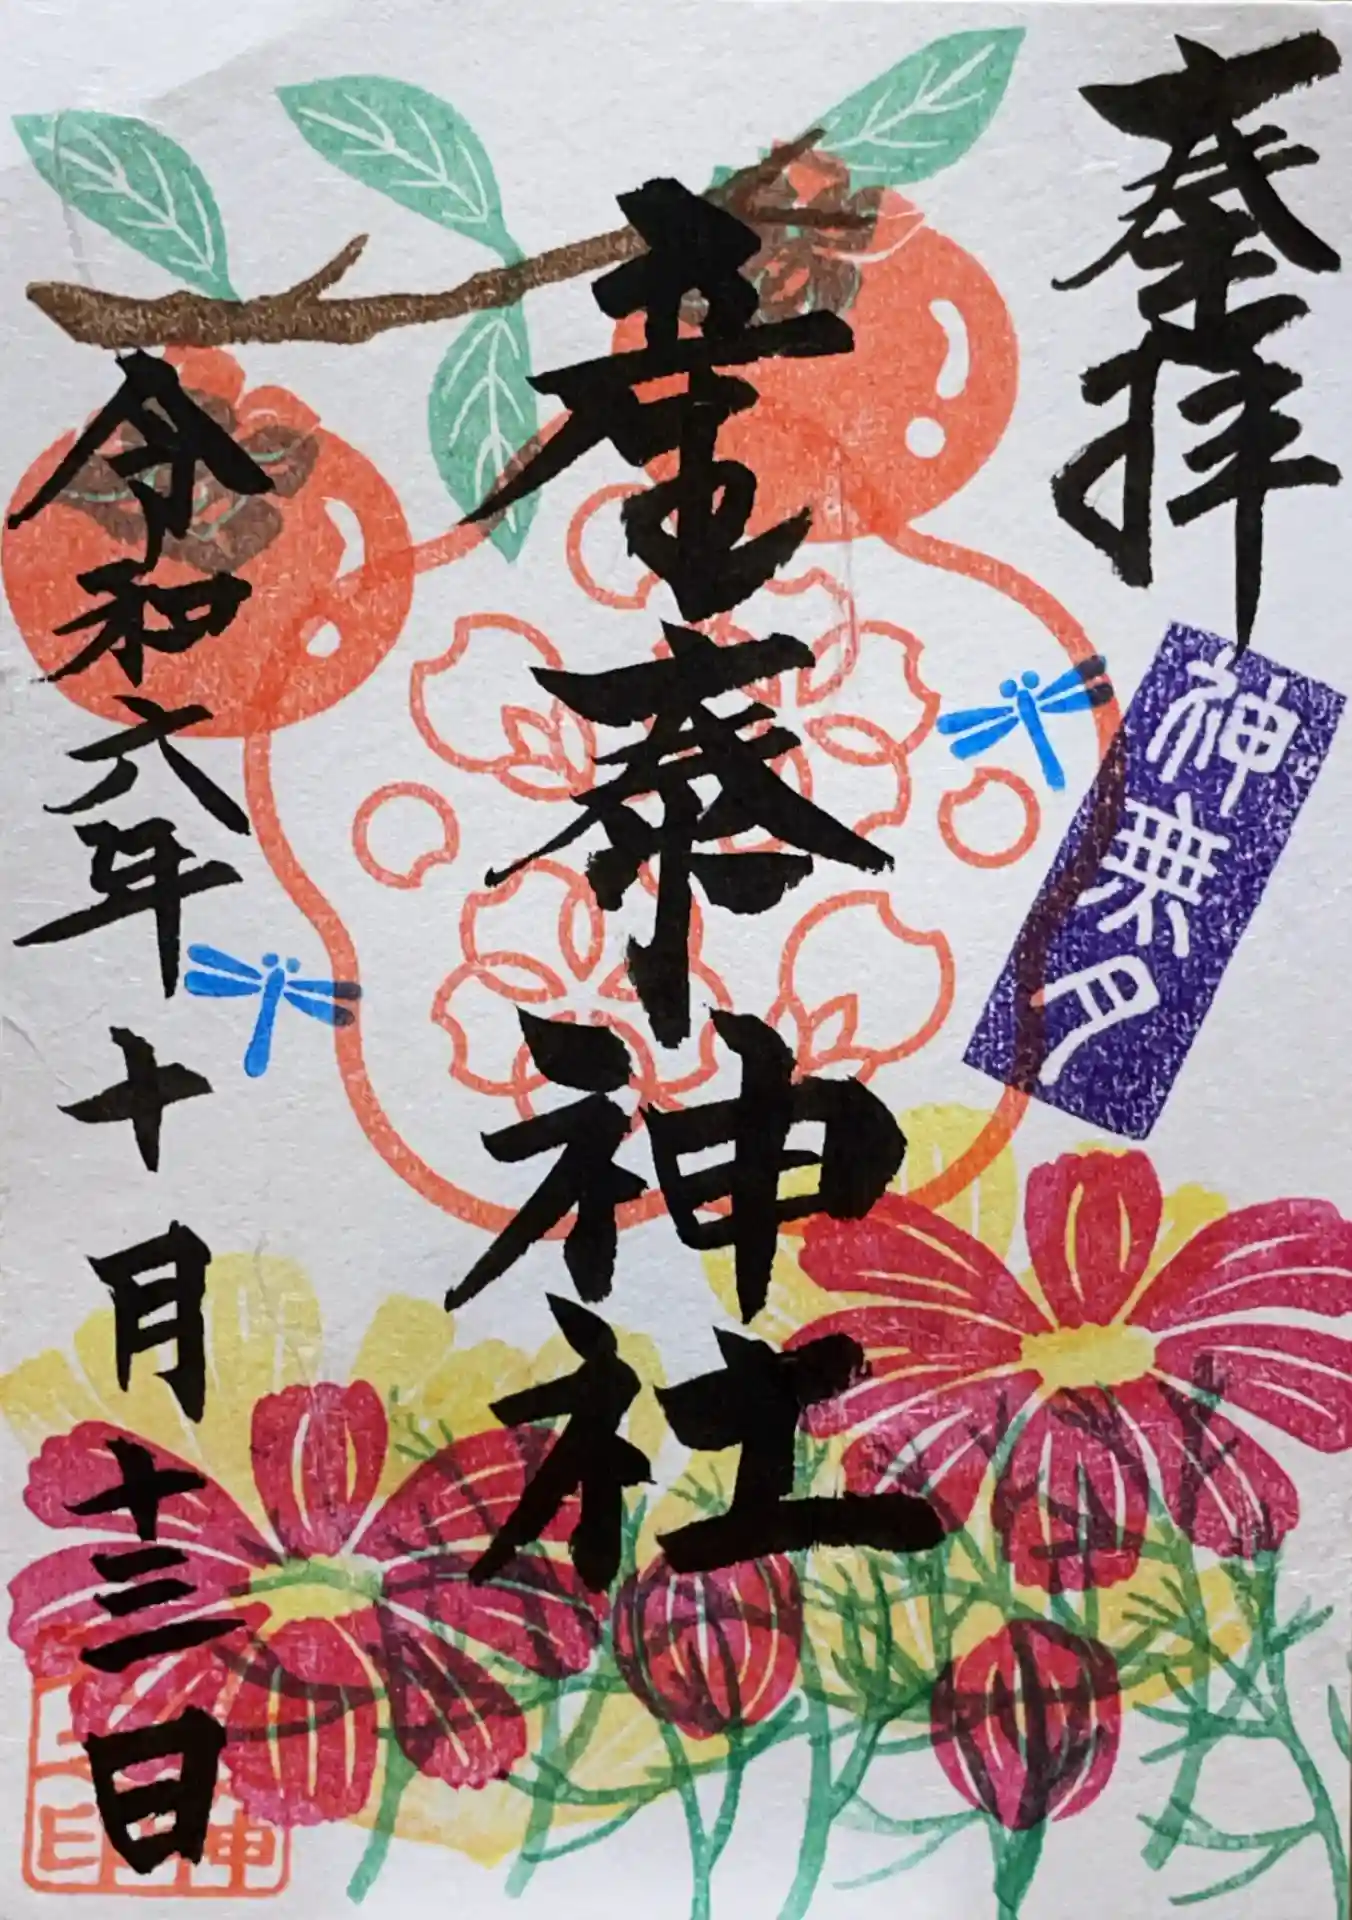 奉拝
神無月
産泰神社
令和六年十月十三日